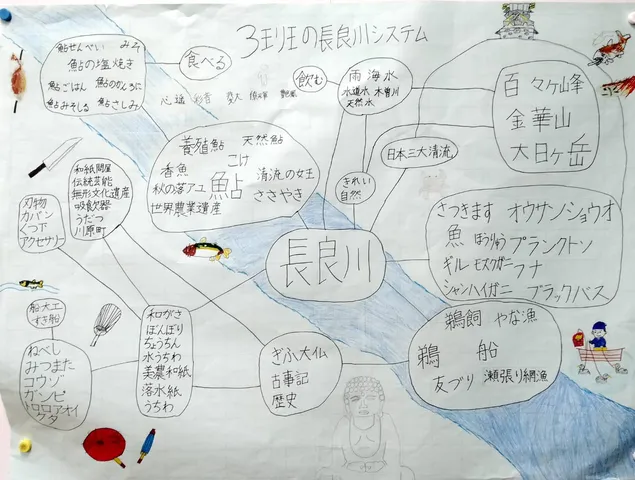 3班の長良川システム
鮎せんべい みそ
鮎の塩焼き
鮎ごはん 鮎のかんろに
鮎みそしる 鮎さしみ
食べる
飲む
雨 海水
水道水 木曽川
天然水
百々ヶ峰
金華山
大日ヶ岳
養殖鮎 天然鮎
香魚 こけ
秋の落アユ 鮎 清流の女王
世界農業遺産 ささやき
きれい
自然
日本三大清流
和紙問屋
伝統芸能
無形文化遺産
吸飲器
うだつ
川原町
刃物
カバン
くつ下
アクセサリー
長良川
さつきます オウサンショウオ
魚 ほうりゅう プランクトン
ギル モズクガニ フナ
シャンハイガニ ブラックバス
船大工
すき船
和がさ
ぼんぼり
ちょうちん
水うちわ
美濃和紙
落水紙
うちわ
ぎふ大仏
古事記
歴史
鵜飼 やな漁
鵜 船
友づり 瀬張り網漁
ねべし
みつまた
コウゾ
ガンピ
トロロアオイ
クタ